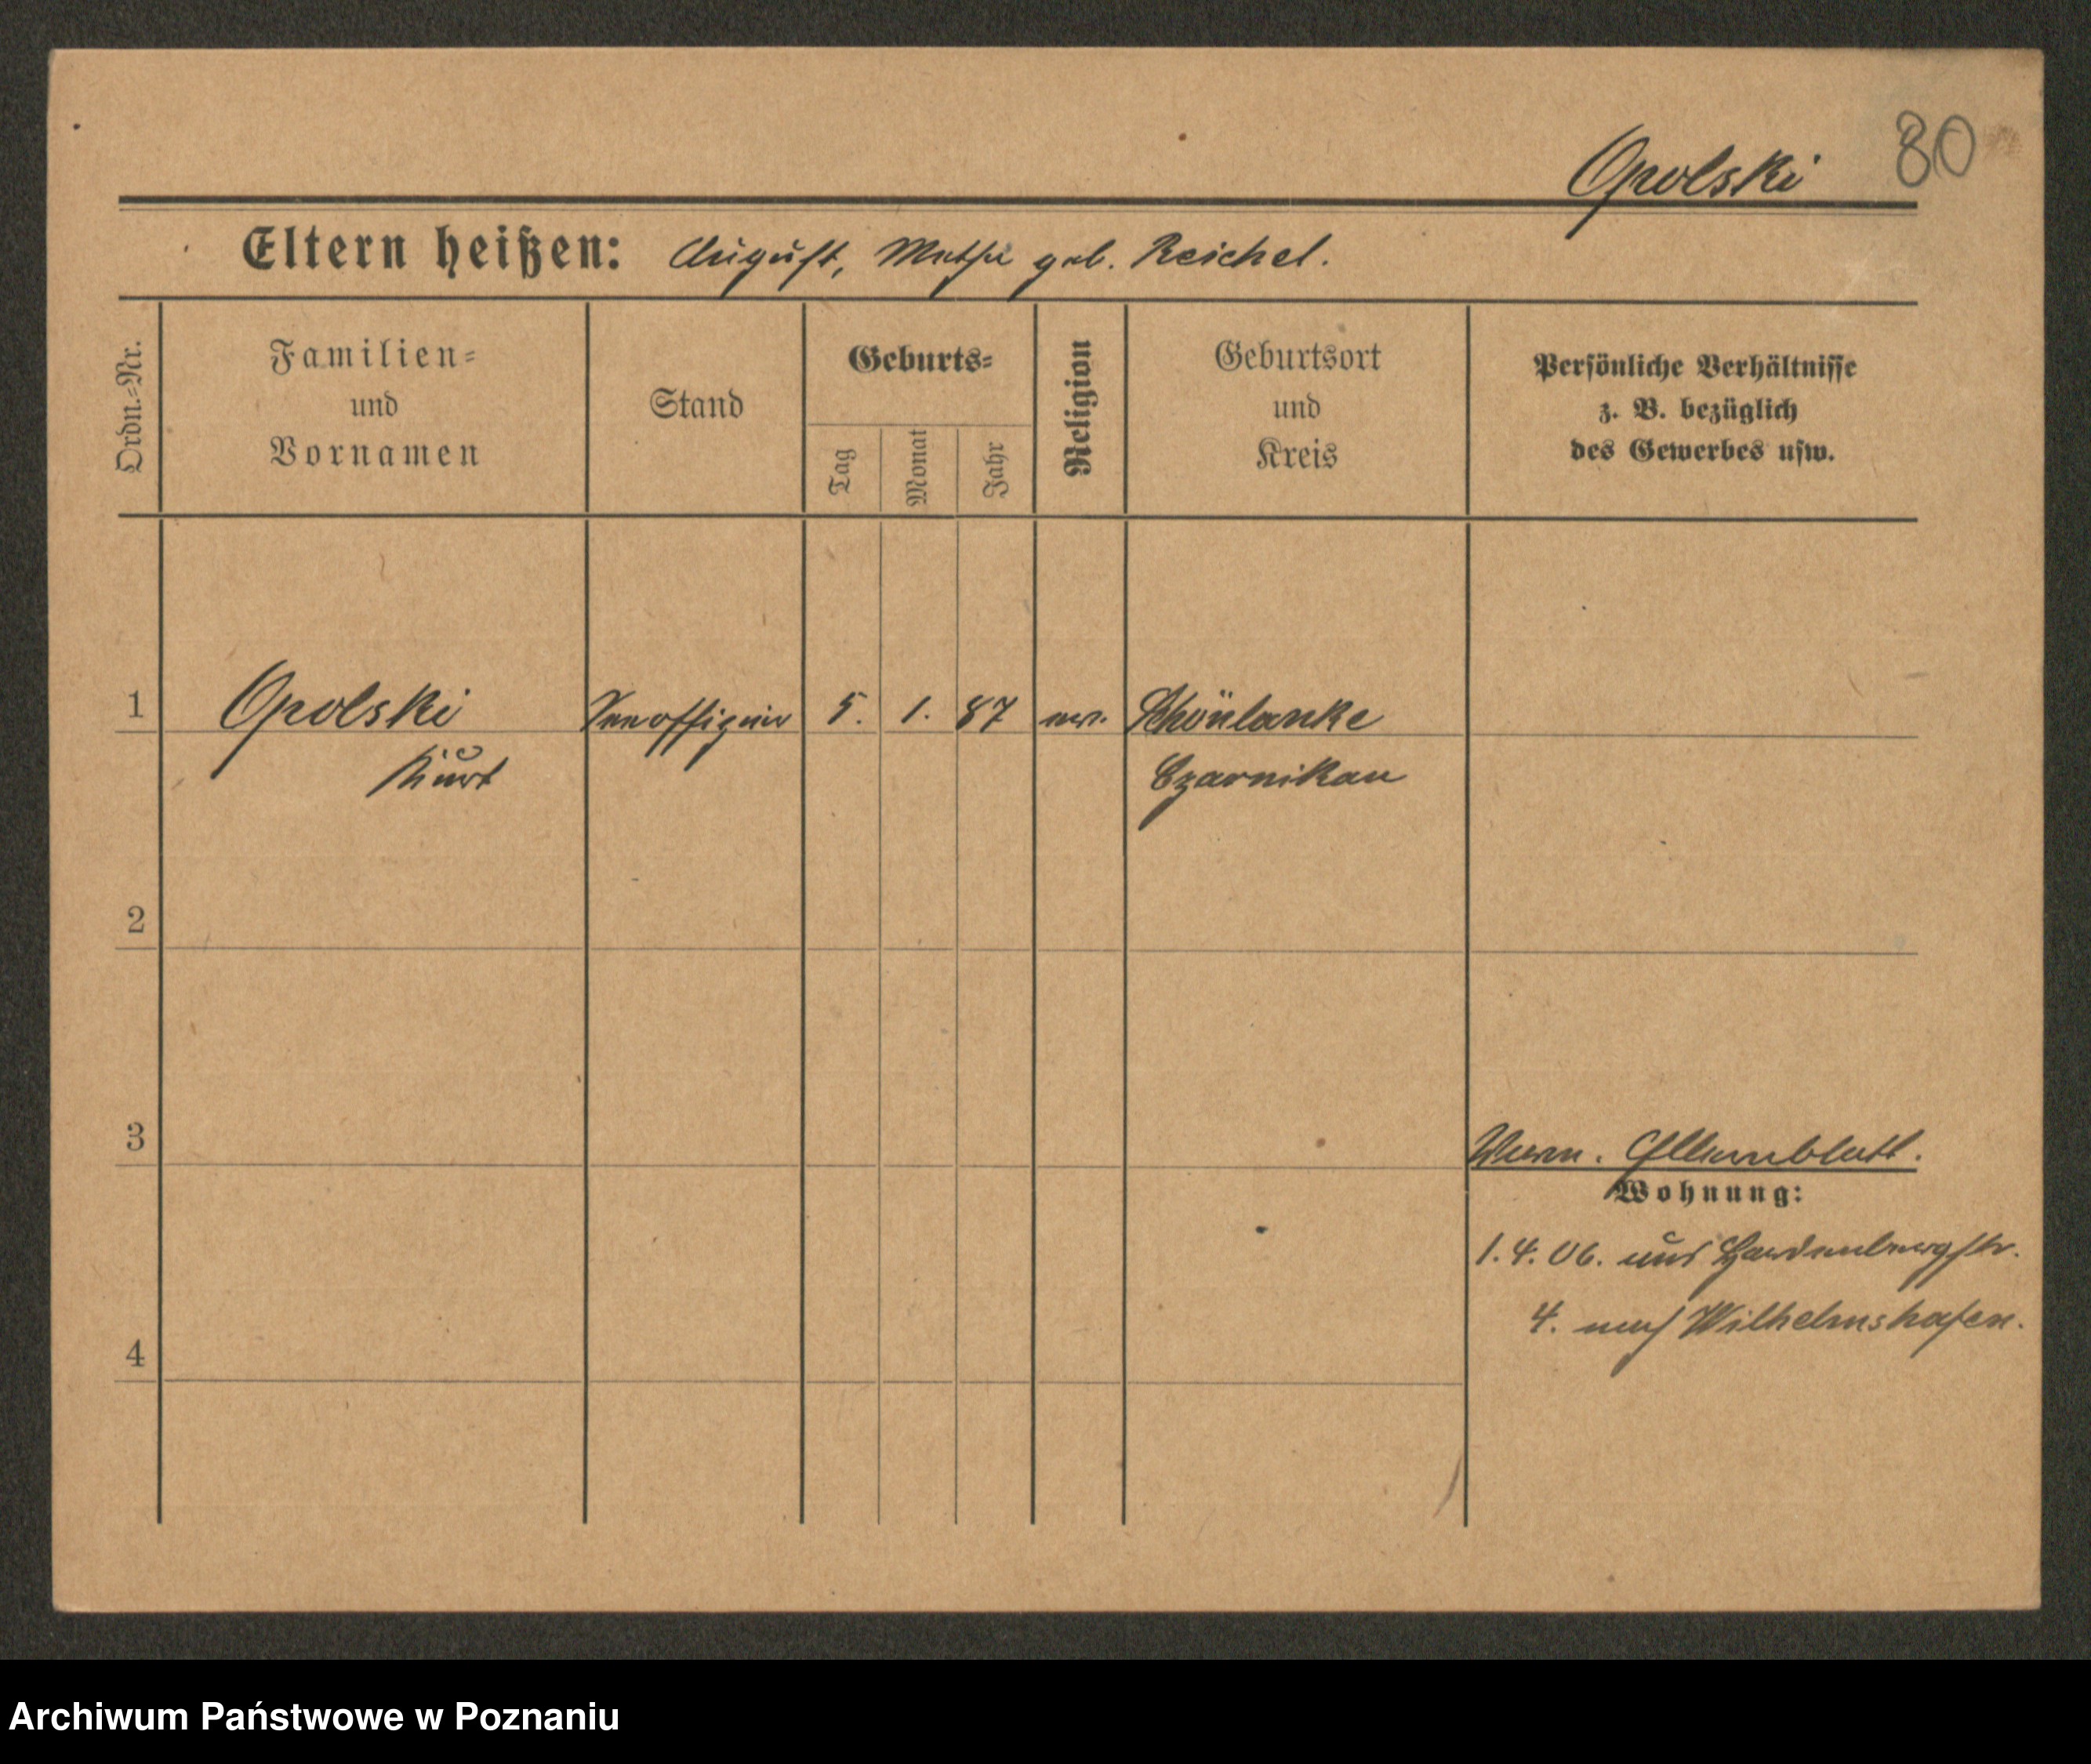 80
Opolski
Eltern heißen: August, geb. Reichel.
Ordn.=Nr.
Familien=
und
Vornamen
Stand
Geburts=
Tag
Monat
Jahr
Religion
Geburtsort
und
Kreis
Persönliche Verhältnisse
z. B. bezüglich
des Gewerbes usw.
1
Opolski
5. 1. 87
Schönlanke
Kurt
Czarnikau
2
3
Wohnung:
1. 4. 06. aus Hardenbergstr.
4. nach Wilhelmshafen.
4
Archiwum Państwowe w Poznaniu